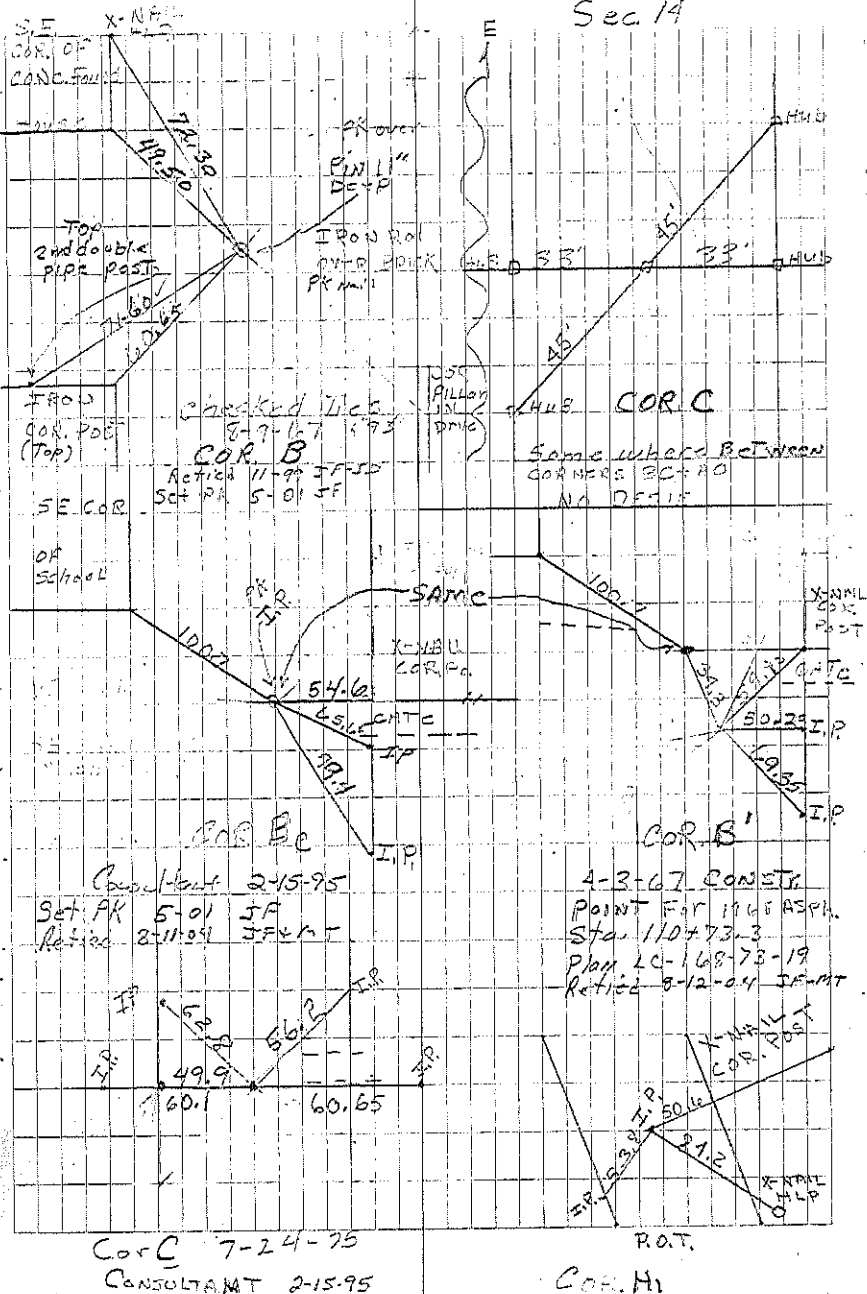 Sec. 14
S.E
COR. OF
CONC. Found
HOUSE
X-NAIL
72.30
49.50
PK over
PIN 11"
DEEP
IRON ROD
PK nail
TOP
2nd double
pipe post
71.60
60.65
IRON
COR. POST
(TOP)
Checked Ties
COR. B
Retied 11-99 JF-JD
Set PK 5-01 JF
E
HUB
45'
HUB 33'
33' HUB
45'
HUB
COR. C
Somewhere BETWEEN
CORNERS BC+AD
SE COR
OF
School
100.7
PK
I.P.
SAME
X-NAIL
COR. Po.
54.6
GATE
IP
79.4
I.P.
COR Bc
Consultant 2-15-95
Set PK 5-01 JF
Retied 8-11-04 JF & MT
100.7
X-NAIL
COR
POST
34.3
GATE
50.25
I.P.
69.35
I.P.
COR. B'
4-3-67 CONSTR.
POINT For ASPH.
Sta. 110+73.3
Plan LC-168-73-19
Retied 8-12-04 JF-MT
IP
62.8
56.2
I.P.
I.P.
49.9
60.1
60.65
I.P.
Cor C 7-24-75
CONSULTANT 2-15-95
X-NAIL
COR. POST
I.P.
50.6
53.8
I.P.
X-NAIL
P.O.T.
COR. H1